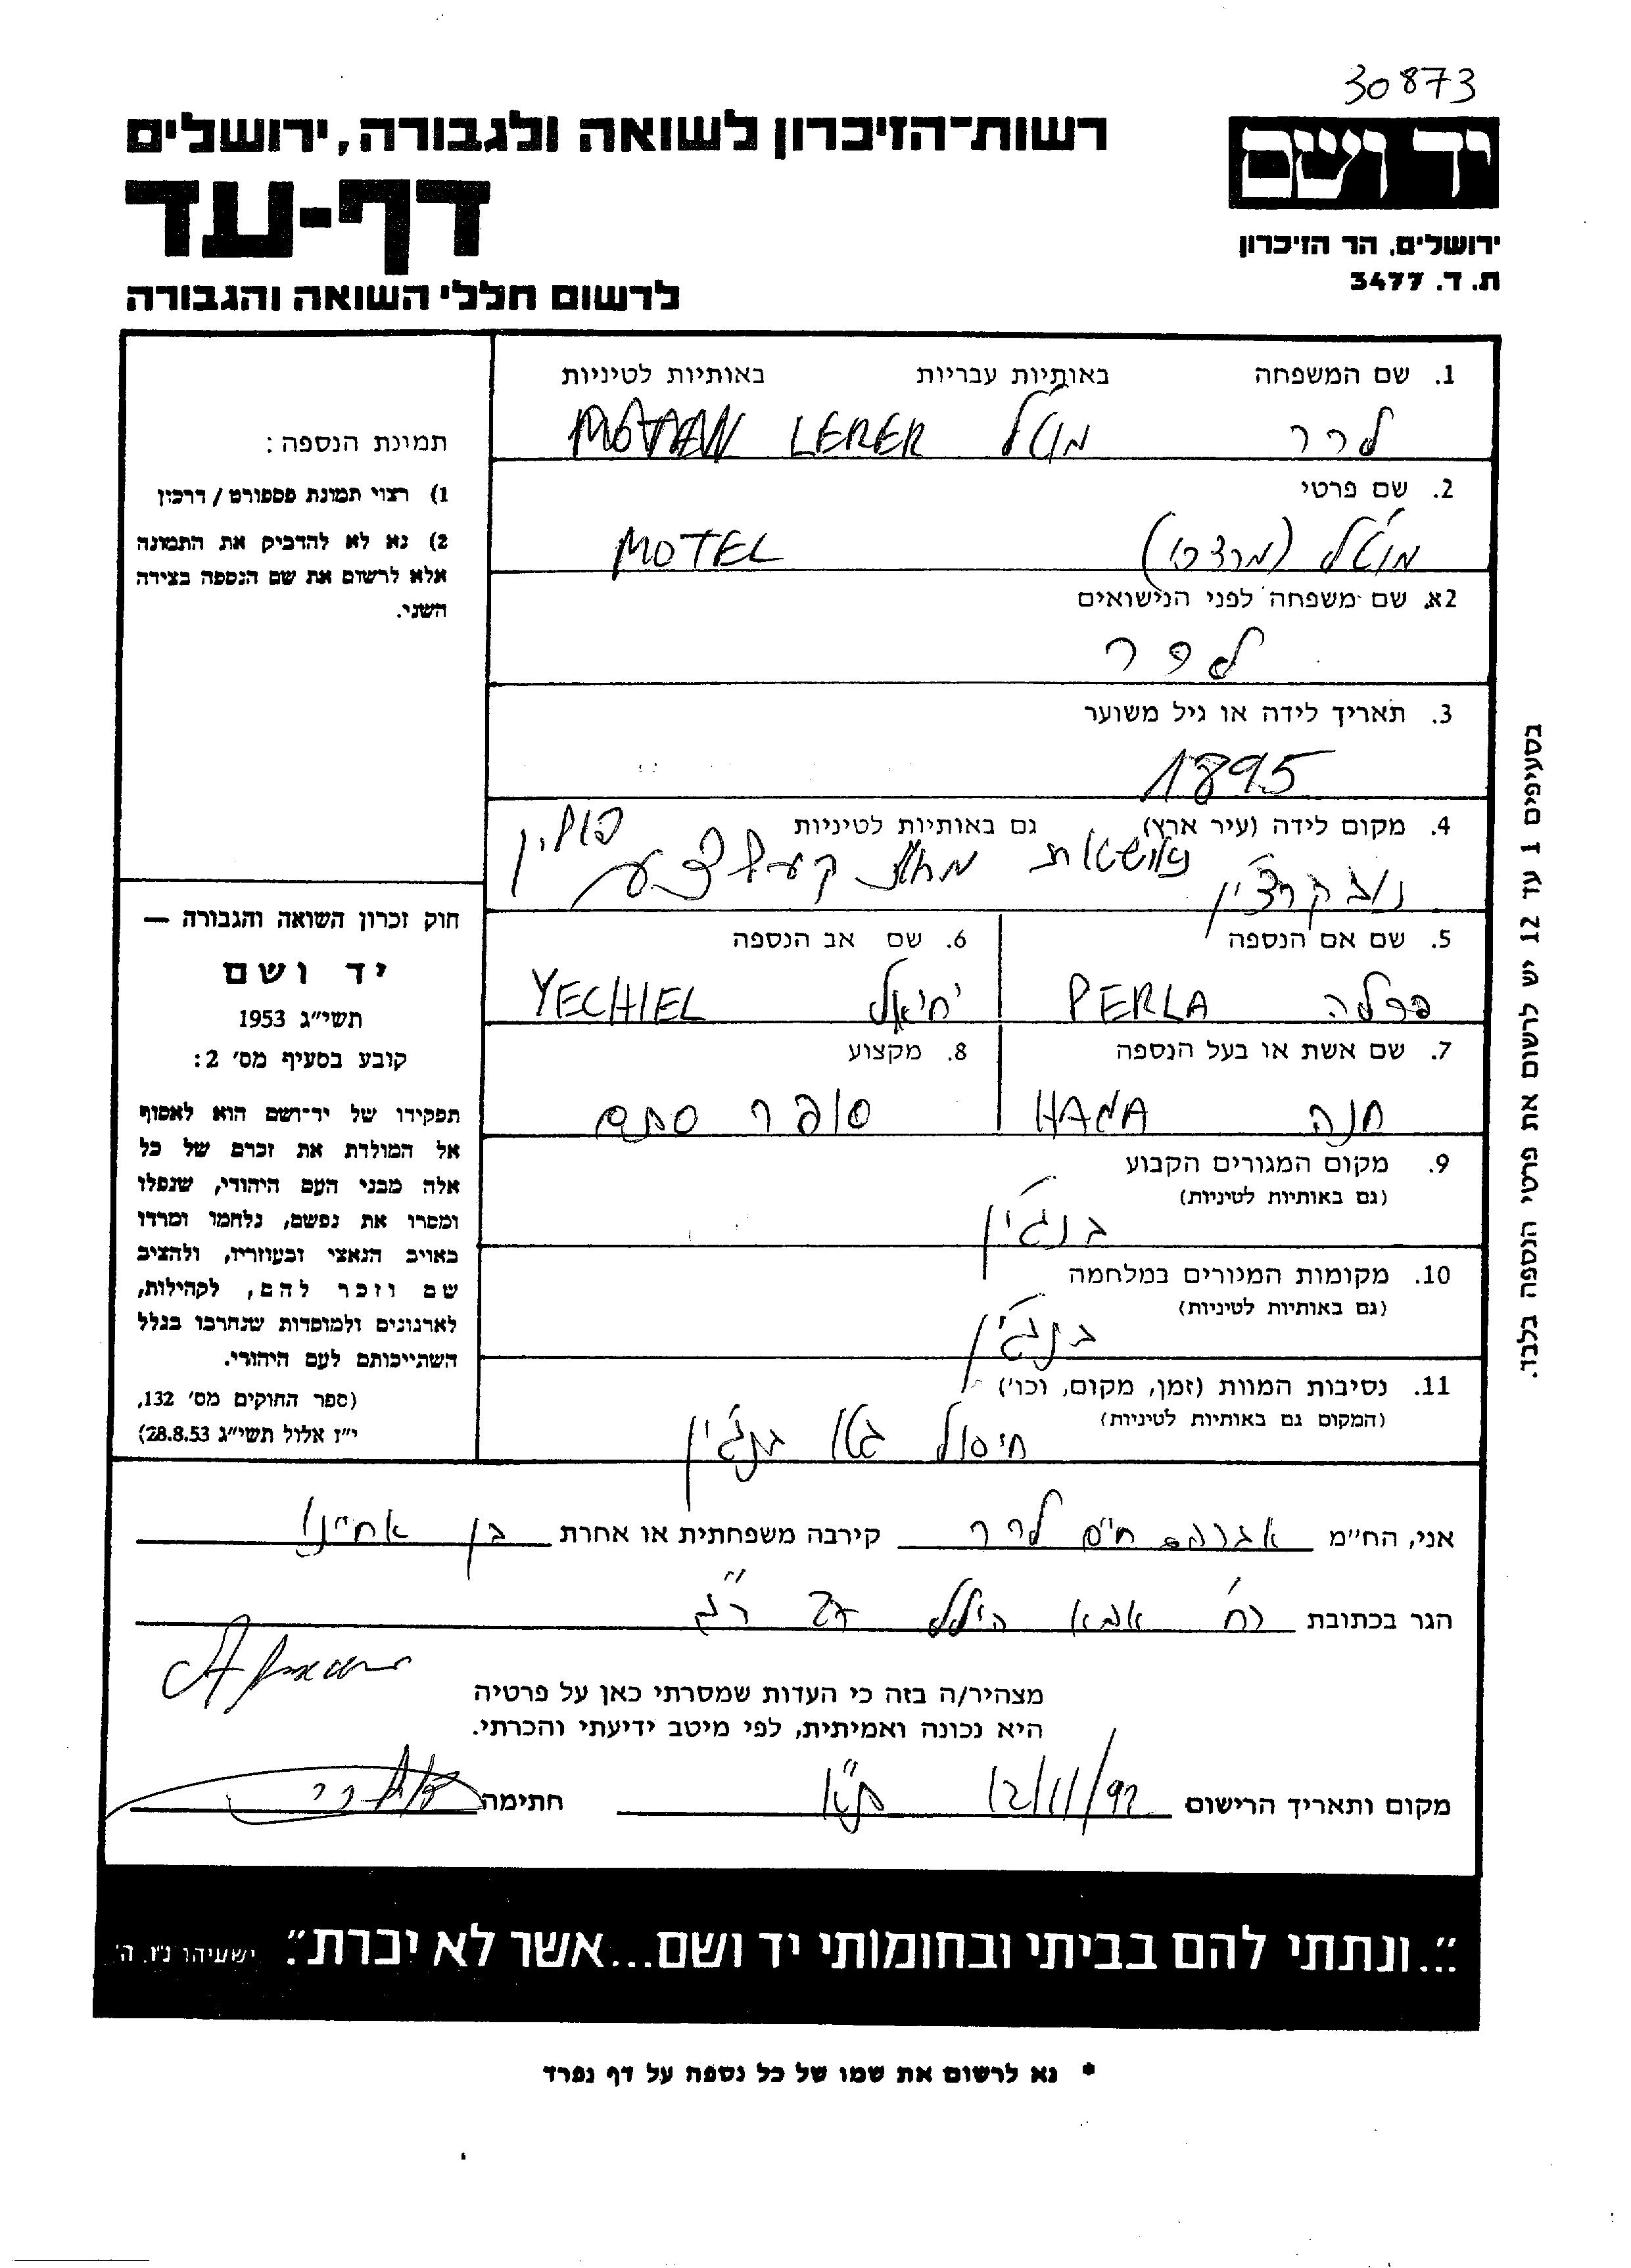 30873
רשות־הזיכרון לשואה ולגבורה, ירושלים
יד ושם
דף-עד
ירושלים, הר הזיכרון
ת. ד. 3477
לרשום חללי השואה והגבורה
1. שם המשפחה באותיות עבריות באותיות לטיניות
לרר מוטל LERER
2. שם פרטי
מוטל (מרדכי) MOTEL
2א. שם משפחה לפני הנישואים
לרר
3. תאריך לידה או גיל משוער
1895
4. מקום לידה (עיר ארץ) גם באותיות לטיניות
פולין
5. שם אם הנספה
פרלה PERLA
6. שם אב הנספה
יחיאל YECHIEL
7. שם אשת או בעל הנספה
חנה HANA
8. מקצוע
סופר סתם
9. מקום המגורים הקבוע
(גם באותיות לטיניות)
בנג'ין
10. מקומות המגורים במלחמה
(גם באותיות לטיניות)
בנג'ין
11. נסיבות המוות (זמן, מקום, וכו')
(המקום גם באותיות לטיניות)
חיסול גטו בנג'ין
תמונת הנספה:
1) רצוי תמונת פספורט / דרכון
2) נא לא להדביק את התמונה
אלא לרשום את שם הנספה בצידה
השני.
חוק זכרון השואה והגבורה —
יד ושם
תשי"ג 1953
קובע בסעיף מס' 2:
תפקידו של יד־ושם הוא לאסוף
אל המולדת את זכרם של כל
אלה מבני העם היהודי, שנפלו
ומסרו את נפשם, נלחמו ומרדו
באויב הנאצי ובעוזריו, ולהציב
שם וזכר להם, לקהילות,
לארגונים ולמוסדות שנחרבו בגלל
השתייכותם לעם היהודי.
(ספר החוקים מס' 132,
י"ז אלול תשי"ג 28.8.53)
בסעיפים 1 עד 12 יש לרשום את פרטי הנספה בלבד.
אני, הח"מ אברהם חיים לרר קירבה משפחתית או אחרת בן אחיינו
הגר בכתובת רח' אבא הילל ר"ג
מצהיר/ה בזה כי העדות שמסרתי כאן על פרטיה
היא נכונה ואמיתית, לפי מיטב ידיעתי והכרתי.
מקום ותאריך הרישום 12/11/92 ת"א חתימה
"...ונתתי להם בביתי ובחומותי יד ושם...אשר לא יכרת". ישעיהו נ"ו, ה'
* נא לרשום את שמו של כל נספה על דף נפרד